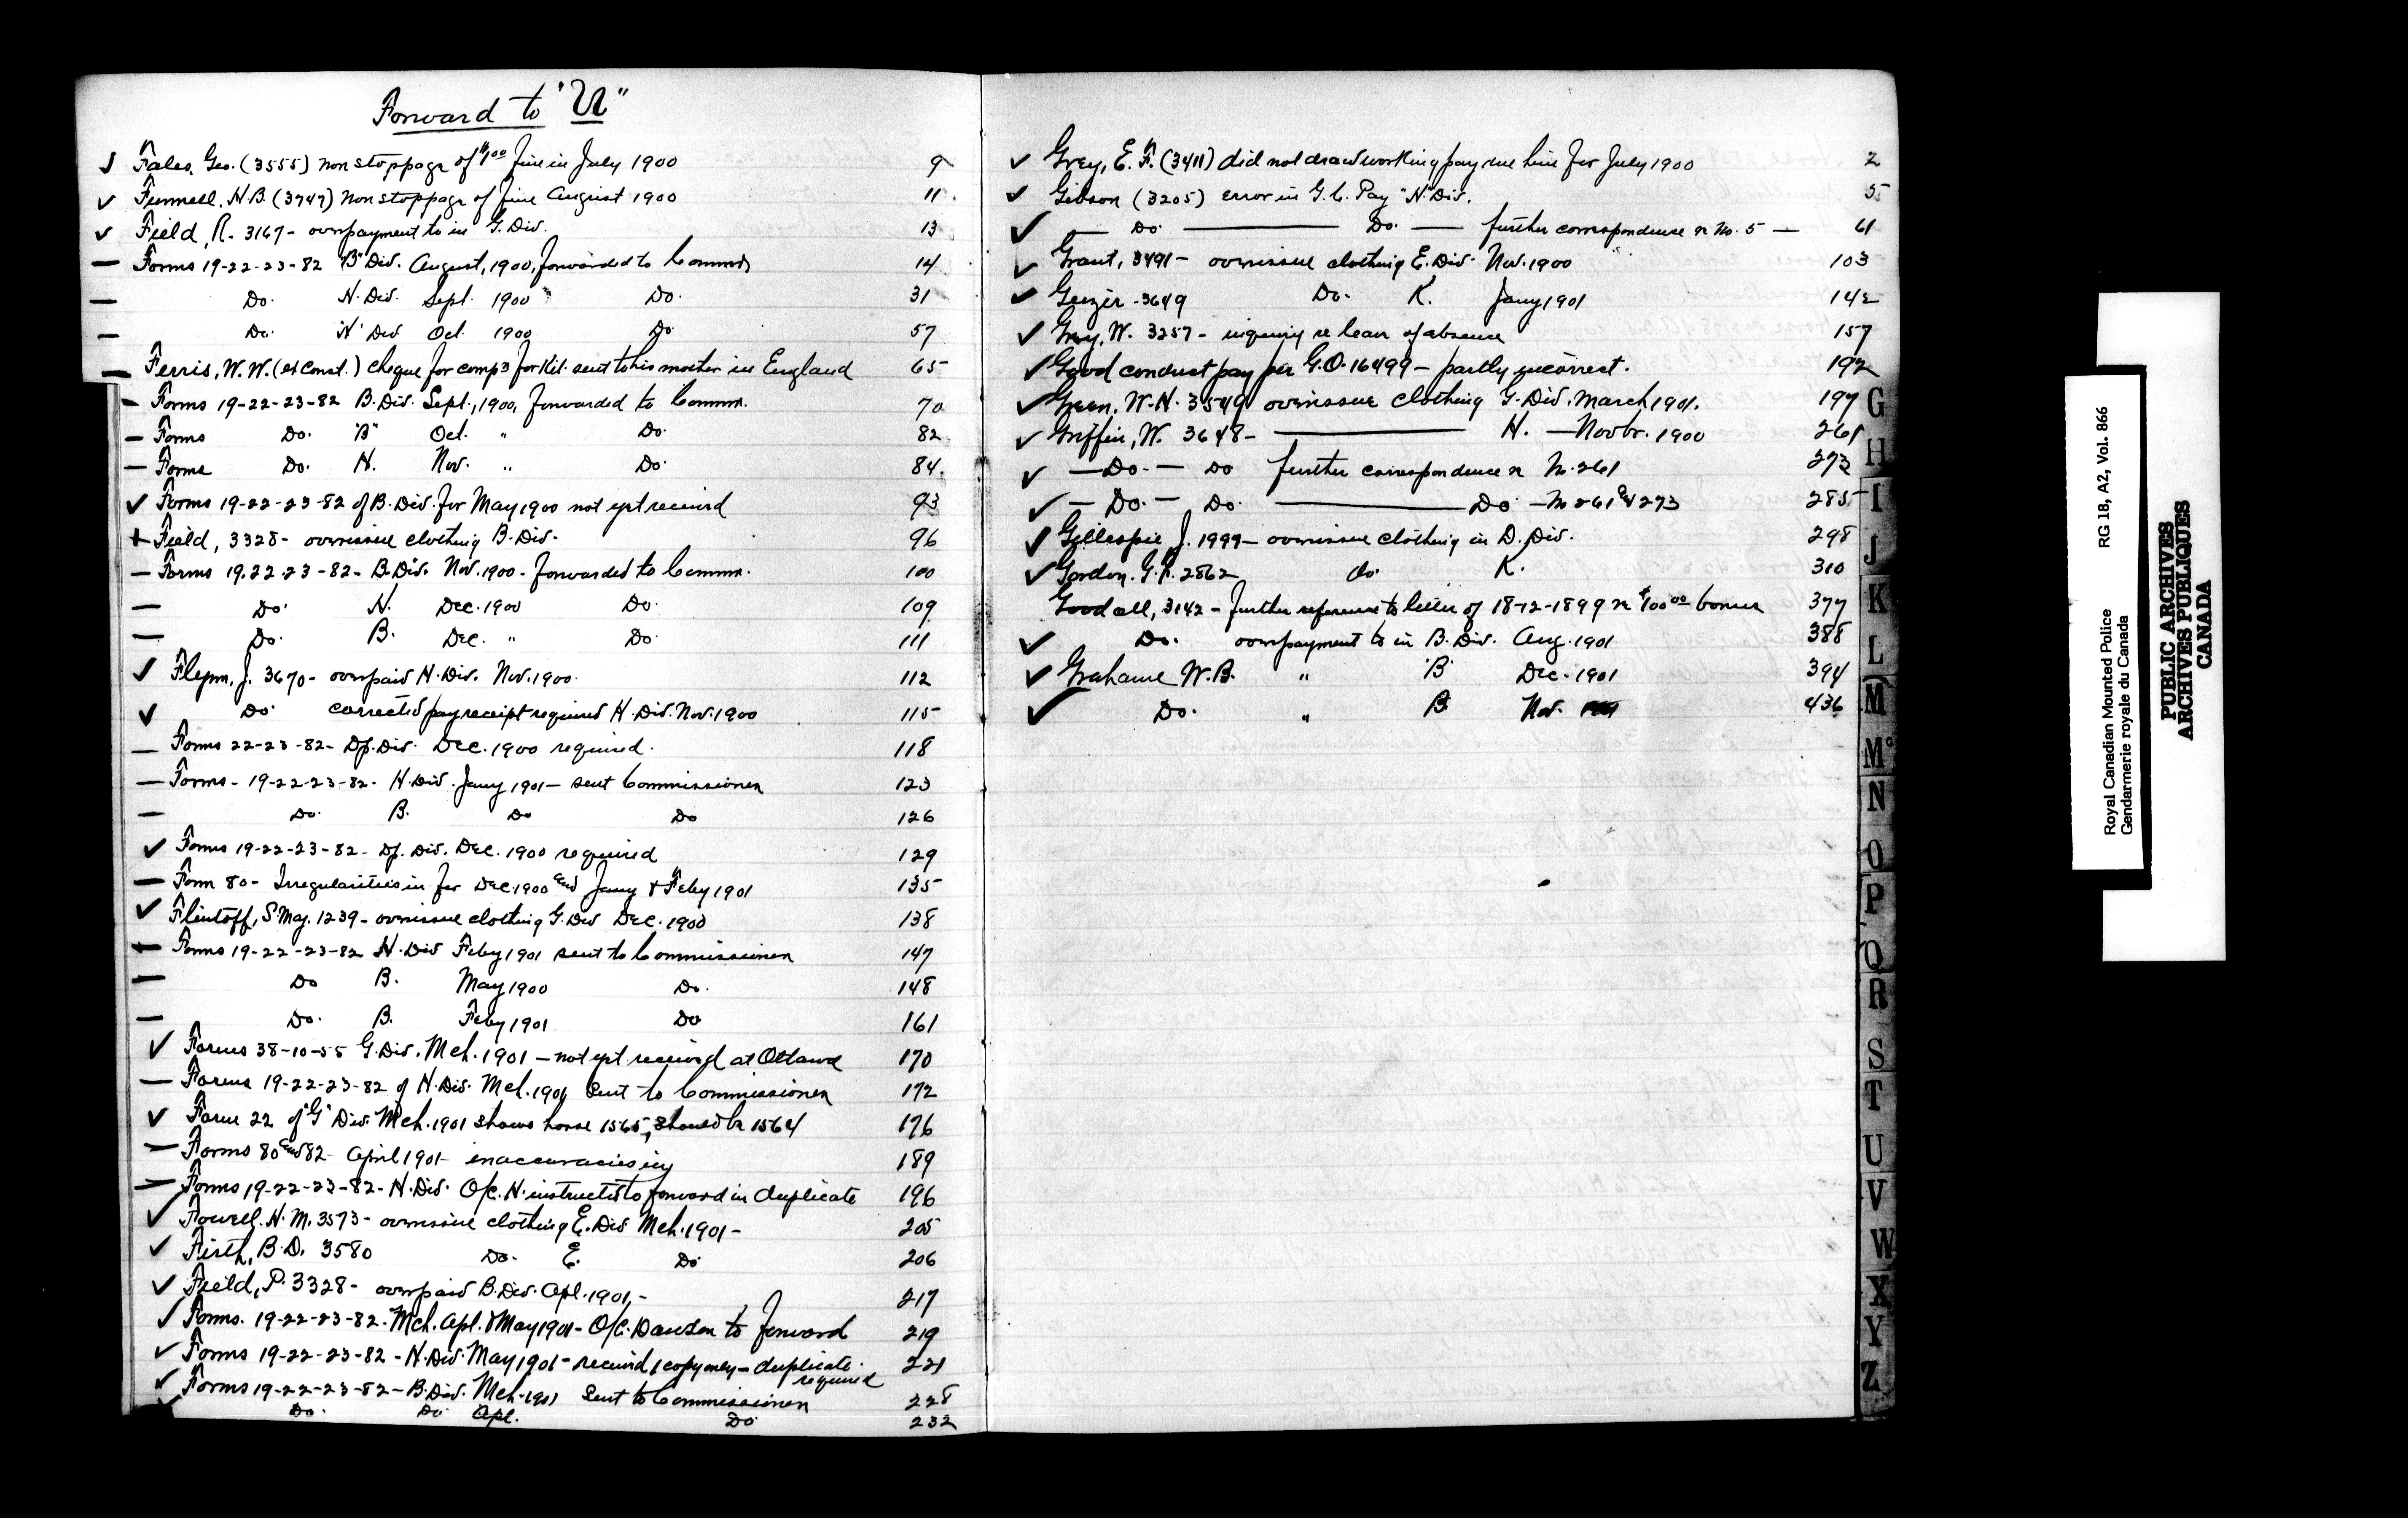 Forward to "U"
Fales, Geo. (3555) non stoppage of $1.00 fine in July 1900 9
Funnell, H.B. (3747) non stoppage of fine August 1900 11
Field, R. 3167 - overpayment to in G. Div. 13
Forms 19-22-23-82 "B" Div. August, 1900, forwarded to Commr. 14
Do. H. Div. Sept. 1900 Do. 31
Do. "H" Div Oct. 1900 Do. 57
Ferris, W.W. (ex Const.) cheque for compn for kit sent to his mother in England 65
Forms 19-22-23-82 B. Div. Sept., 1900, forwarded to Commr. 70
Forms Do. "B" Oct. " Do. 82
Forms Do. H. Nov. " Do. 84
Forms 19-22-23-82 of B. Div. for May 1900 not yet received 93
Field, 3328 - overissue clothing B. Div. 96
Forms 19.22.23-82 - B. Div. Nov. 1900 - forwarded to Commr. 100
Do. H. Dec. 1900 Do. 109
Do. B. Dec. " Do. 111
Flynn, J. 3670 - overpaid H. Div. Nov. 1900 112
Do. corrected pay receipt required H. Div. Nov. 1900 115
Forms 22-23-82 - Dp. Div. Dec. 1900 required. 118
Forms - 19-22-23-82. H. Div. Jany 1901 - sent Commissioner 123
Do. B. Do Do 126
Forms 19-22-23-82 - Dp. Div. Dec. 1900 required 129
Form 80 - Irregularities in for Dec. 1900 and Jany & Feby 1901 135
Flintoff, S. Maj. 1239 - overissue clothing G. Div Dec. 1900 138
Forms 19-22-23-82 H. Div Feby 1901 sent to Commissioner 147
Do B. May 1900 Do. 148
Do. B. Feby 1901 Do 161
Forms 38-10-55 G. Div. Mch. 1901 - not yet received at Ottawa 170
Forms 19-22-23-82 of H. Div. Mch. 1901 sent to Commissioner 172
Form 22 of "G" Div. Mch. 1901 shows horse 1565, should be 1564 176
Forms 80 and 82 - April 1901 - inaccuracies in 189
Forms 19-22-23-82 - H. Div. O/C. H. instructed to forward in duplicate 196
Fowell, H.M. 3573 - overissue clothing E. Div Mch. 1901 - 205
Firth, B.D. 3580 Do. E. Do. 206
Field, P. 3328 - overpaid B. Div. Apl. 1901, - 217
Forms. 19-22-23-82. Mch. Apl. & May 1901 - O/C. Dawson to forward 219
Forms 19-22-23-82 - H. Div. May 1901 - received 1 copy only - duplicate required 221
Forms 19-22-23-82 - B. Div. Mch. 1901 sent to Commissioner 228
Do. Do Apl. Do 232
Grey, E.F. (3411) did not draw working pay due him for July 1900 2
Gibson (3205) error in G.C. Pay "H" Div. 5
Do. Do. further correspondence re No. 5 61
Grant, 3491 - overissue clothing E. Div. Nov. 1900 103
Geezer - 3649 Do. K. Jany 1901 142
Grey, W. 3257 - inquiry re leave of absence 157
Good conduct pay per G.O. 16499 - partly incorrect. 192
Green, W.H. 3549 overissue clothing G. Div. March 1901. 197
Griffin, W. 3648 - H. - Novbr. 1900 261
Do. - Do further correspondence re No. 261 273
Do. - Do. Do - No 261 and 273 285
Gillespie J. 1999 - overissue clothing in D. Div. 298
Gordon, G.R. 2862 do. K. 310
Goodall, 3142 - further reference to letter of 18-12-1899 re $100.00 bonus 377
Do. overpayment to in B. Div. Aug. 1901 388
Grahame W.B. " "B" Dec. 1901 394
Do. " B Nov. 436
G
H
I
J
K
L
M
Mc
N
O
P
Q
R
S
T
U
V
W
X
Y
Z
Royal Canadian Mounted Police RG 18, A2, Vol. 866
Gendarmerie royale du Canada
PUBLIC ARCHIVES
ARCHIVES PUBLIQUES
CANADA